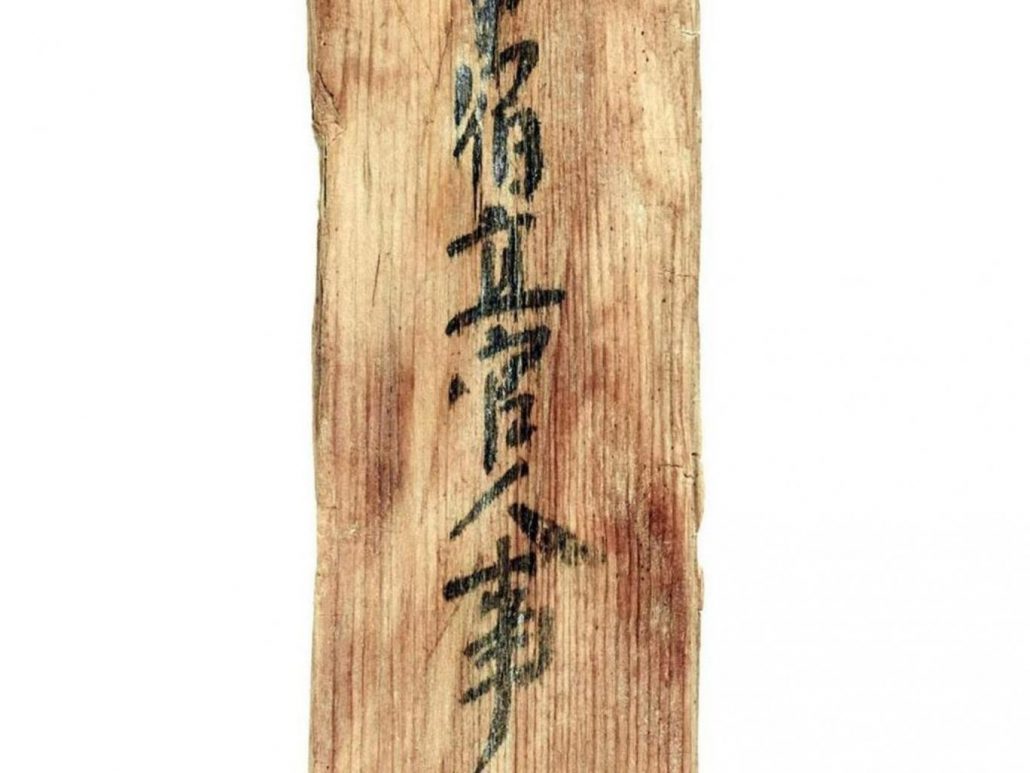 宿直官人事